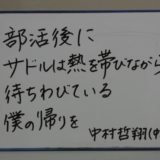 部活後に
サドルは熱を帯びながら
待ちわびている
僕の帰りを
中村哲翔(中